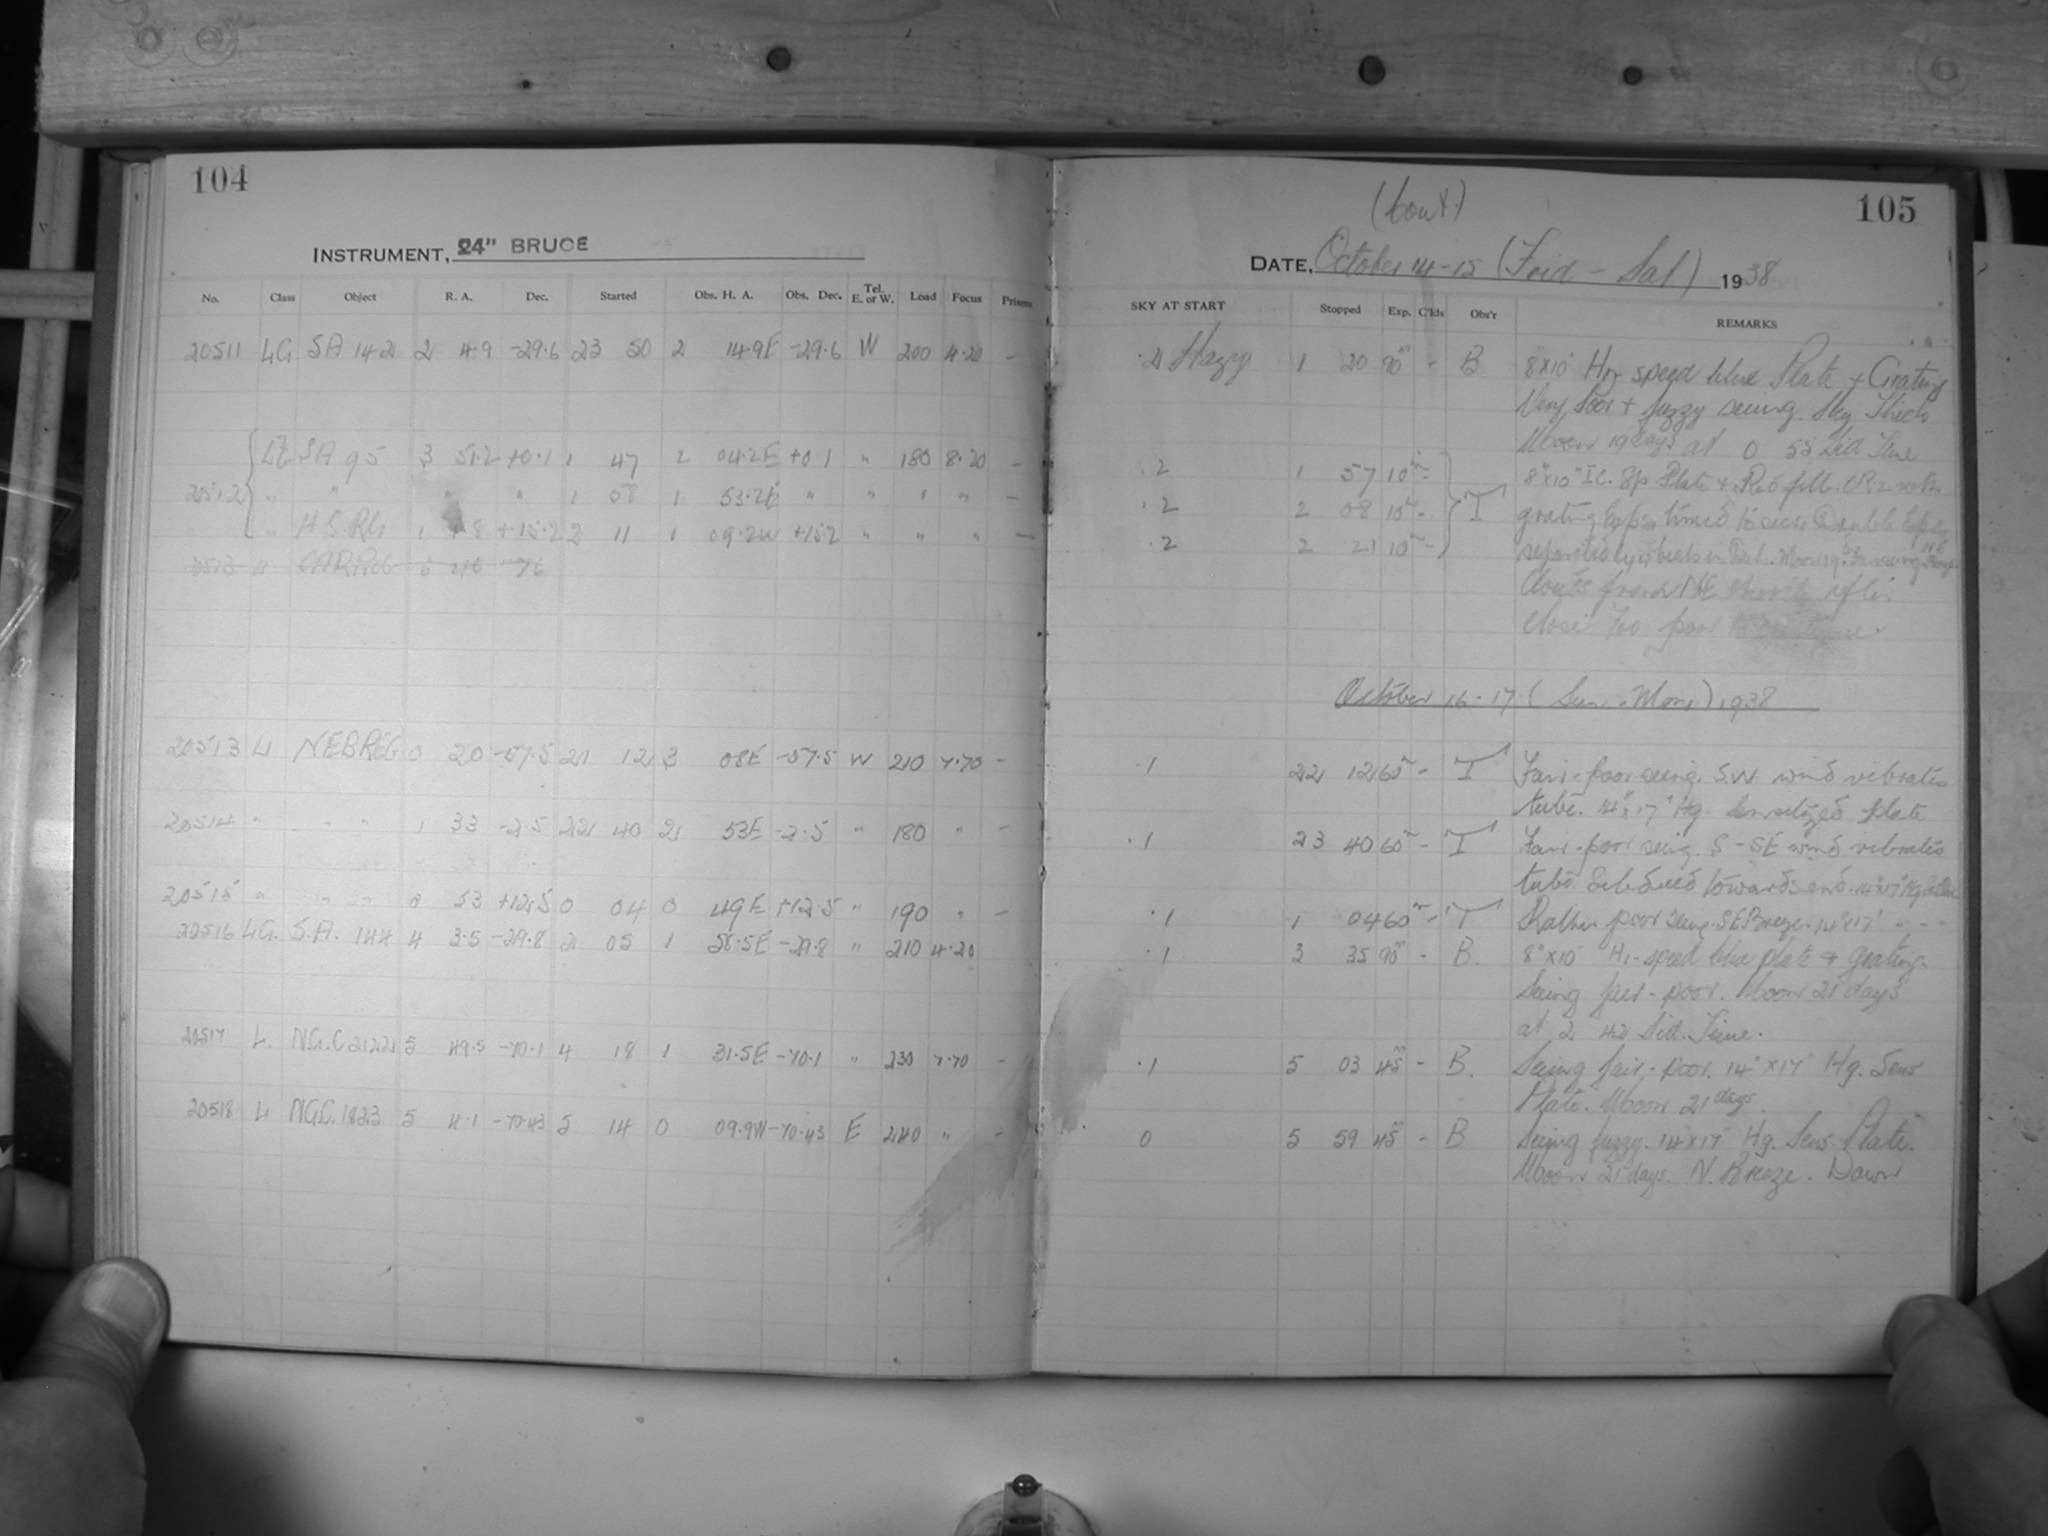 104
INSTRUMENT, 24" BRUCE
No. Class Object R. A. Dec. Started Obs. H. A. Obs. Dec. Tel. E. or W. Load Focus Prisms
20511 LG SA 142 2 4.9 -29.6 23 50 2 14.9E -29.6 W 200 4.20 -
SA 95 3 51.2 +0.1 1 47 2 04.2E +0.1 " 180 8.20 -
20512 " " " " 1 58 1 53.2E " " " " -
" H.S.RG 1 +15.2 2 11 1 09.2W +15.2 " " " -
20513 CARREG 6 40 -76
20513 L NEBREG 0 20 -57.5 21 12 3 08E -57.5 W 210 7.70 -
20514 " " " 1 33 -2.5 22 40 2 53E -2.5 " 180 " -
20515 " " " 0 53 +12.5 0 04 0 49E +12.5 " 190 " -
20516 LG. S.A. 144 4 3.5 -29.8 2 05 1 58.5E -29.8 " 210 4.20
20517 L. N.G.C 2122 5 49.5 -70.1 4 18 1 31.5E -70.1 " 230 7.70 -
20518 L NGC.1823 5 4.1 -70.43 5 14 0 09.9W -70.43 E 240 " -
(Cont.)
105
DATE, October 14-15 (Frid - Sat) 1938
SKY AT START Stopped Exp. C'lds Obs'r REMARKS
.2 Hazy 1 20 90m - B 8"x10" Hy speed blue Plate + Grating
Very Poor + fuzzy seeing. Sky Thick
Moon 19 days at 0 55 Sid Time
.2 1 57 10m 8"x10" I.C. Sp. Plate + Red filt.
.2 2 08 10m - T grating Exps. timed
.2 2 21 10m -
Clouds from NE after
close Too poor
October 16-17 (Sun - Mon) 1938
.1 22 12 60m - T Fair-poor seeing. S.W. wind vibrates
tube. 14"x17" Hg. Sensitized Plate
.1 23 40 60m - T Fair-poor seeing. S-SE wind vibrates
tube. Subdued towards end. 14"x17" Hg
.1 1 04 60m - T Rather poor seeing. SE Breeze. 14"x17" " - -
.1 3 35 90m - B. 8"x10" Hi-speed blue plate + grating.
Seeing fair-poor. Moon 21 days
at 2 42 Sid. Time.
.1 5 03 45m - B. Seeing fair-poor. 14"x17" Hg. Sens
Plate. Moon 21 days
0 5 59 45m - B Seeing fuzzy. 14"x17" Hg. Sens Plate.
Moon 21 days. N. Breeze. Dawn